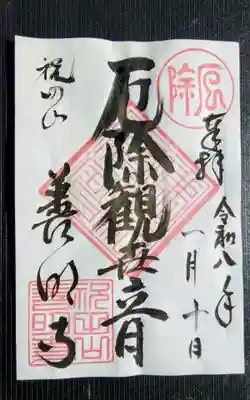 厄除
奉拝
令和八年
一月十日
厄除観世音
善明寺